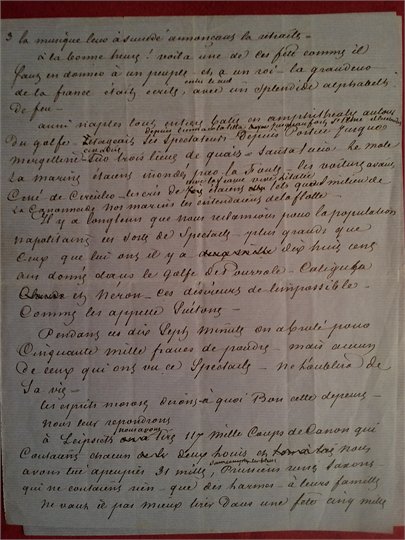 3 la musique leur a succédé annonçant la retraite –
à la bonne heure! voila une de ces fête comme il
faut en donner à un peuple et a un roi – la grandeur
de la france était écrite, avec un splendide alphabet
de feu –
aussi naples tout entier bati en amphithéatre autour
du golfe – depuis Portici jusque
Mergelline – trois lieues de quais – Santa Lucia – le mole
la marine étaient inondés par la foule – les voitures avaient
cessé de circuler – les cris de étaient tels qu'au milieu de
la Canonnade nos marins les entendaient de la flotte –
Il y a longtems que nous reclamions pour la population
napolitaine ces sorte de Spectacle – plus grands que
ceux que lui ont il y a dix huit cens
ans donné dans le golfe de Pouzzole – Caligula
et Néron – ces désireurs de l'impossible –
Comme les appelle Suétone –
Pendant ces dix Sept minutes on a brulé pour
Cinquante mille francs de poudre – mais aucun
de ceux qui ont vu ce Spectacle – ne l'oubliera de
Sa vie –
les esprits moroses diront – à quoi Bon cette depense –
nous leur repondrons
à Leipsick nous avons tiré 117 mille Coups de Canon qui
Coutaient chacun deux louis et nous
avons tué a peu près 21 mille Prussiens russes Saxons –
qui ne coutaient rien – que des larmes – à leurs famille
ne vaut il pas mieux tirer Dans une fête cinq mille